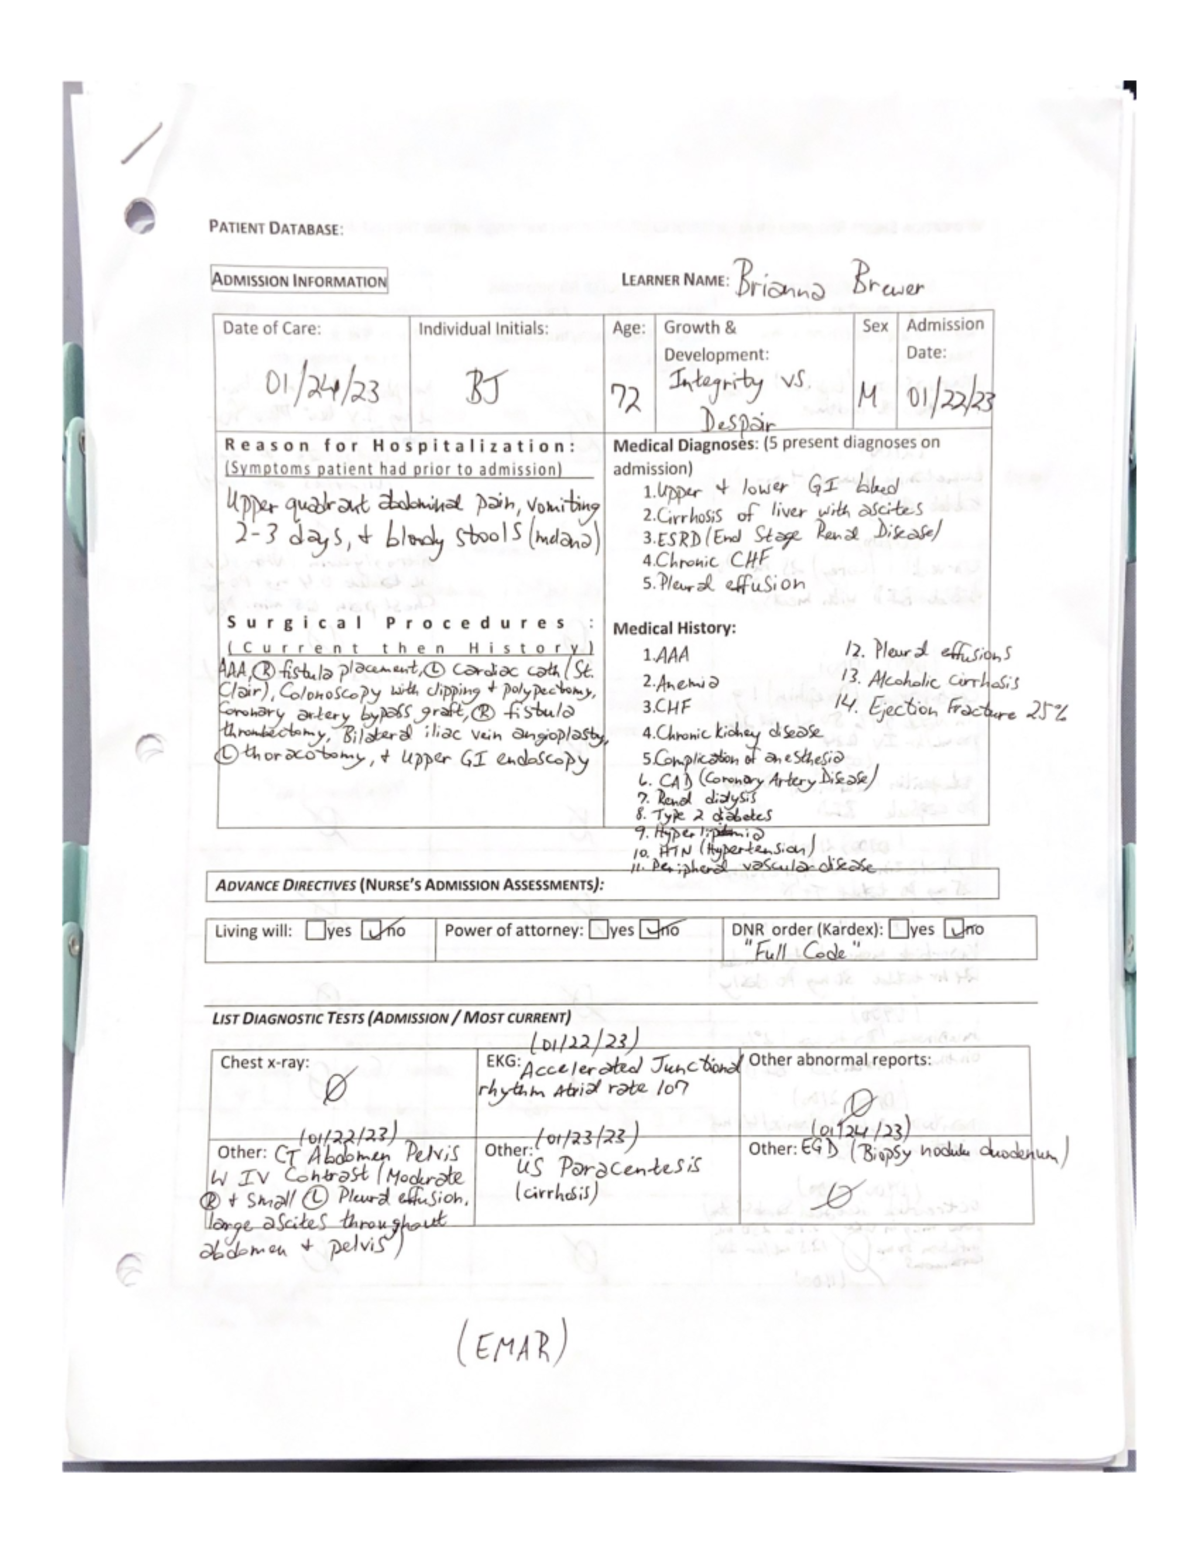 PATIENT DATABASE:
ADMISSION INFORMATION
LEARNER NAME: Brianna Brewer
Date of Care:
01/24/23
Individual Initials:
BJ
Age:
72
Growth &
Development:
Integrity vs.
Despair
Sex
M
Admission
Date:
01/22/23
Reason for Hospitalization:
(Symptoms patient had prior to admission)
Upper quadrant abdominal pain, vomiting
2-3 days, + bloody stools (melana)
Medical Diagnoses: (5 present diagnoses on
admission)
1. Upper + lower GI bleed
2. Cirrhosis of liver with ascites
3. ESRD (End Stage Renal Disease)
4. Chronic CHF
5. Pleural effusion
Surgical Procedures :
(Current then History)
AAA, Ⓡ fistula placement, Ⓛ cardiac cath (St.
Clair), Colonoscopy with clipping + polypectomy,
Coronary artery bypass graft, Ⓡ fistula
thrombectomy, Bilateral iliac vein angioplasty,
Ⓛ thoracotomy, + upper GI endoscopy
Medical History:
1. AAA
2. Anemia
3. CHF
4. Chronic kidney disease
5. Complication of anesthesia
6. CAD (Coronary Artery Disease)
7. Renal dialysis
8. Type 2 diabetes
9. Hyperlipemia
10. HTN (Hypertension)
11. Peripheral vascular disease
12. Pleural effusions
13. Alcoholic Cirrhosis
14. Ejection Fracture 25%
ADVANCE DIRECTIVES (NURSE'S ADMISSION ASSESSMENTS):
Living will: yes no
Power of attorney: yes no
DNR order (Kardex): yes no
"Full Code"
LIST DIAGNOSTIC TESTS (ADMISSION / MOST CURRENT)
Chest x-ray:
Ø
(01/22/23)
EKG: Accelerated Junctional
rhythm Atrial rate 107
Other abnormal reports:
Ø
(01/22/23)
Other: CT Abdomen Pelvis
W IV Contrast (Moderate
Ⓡ + Small Ⓛ Pleural effusion,
large ascites throughout
abdomen + pelvis)
(01/23/23)
Other: US Paracentesis
(cirrhosis)
(01/24/23)
Other: EGD (Biopsy nodule duodenum)
Ø
(EMAR)